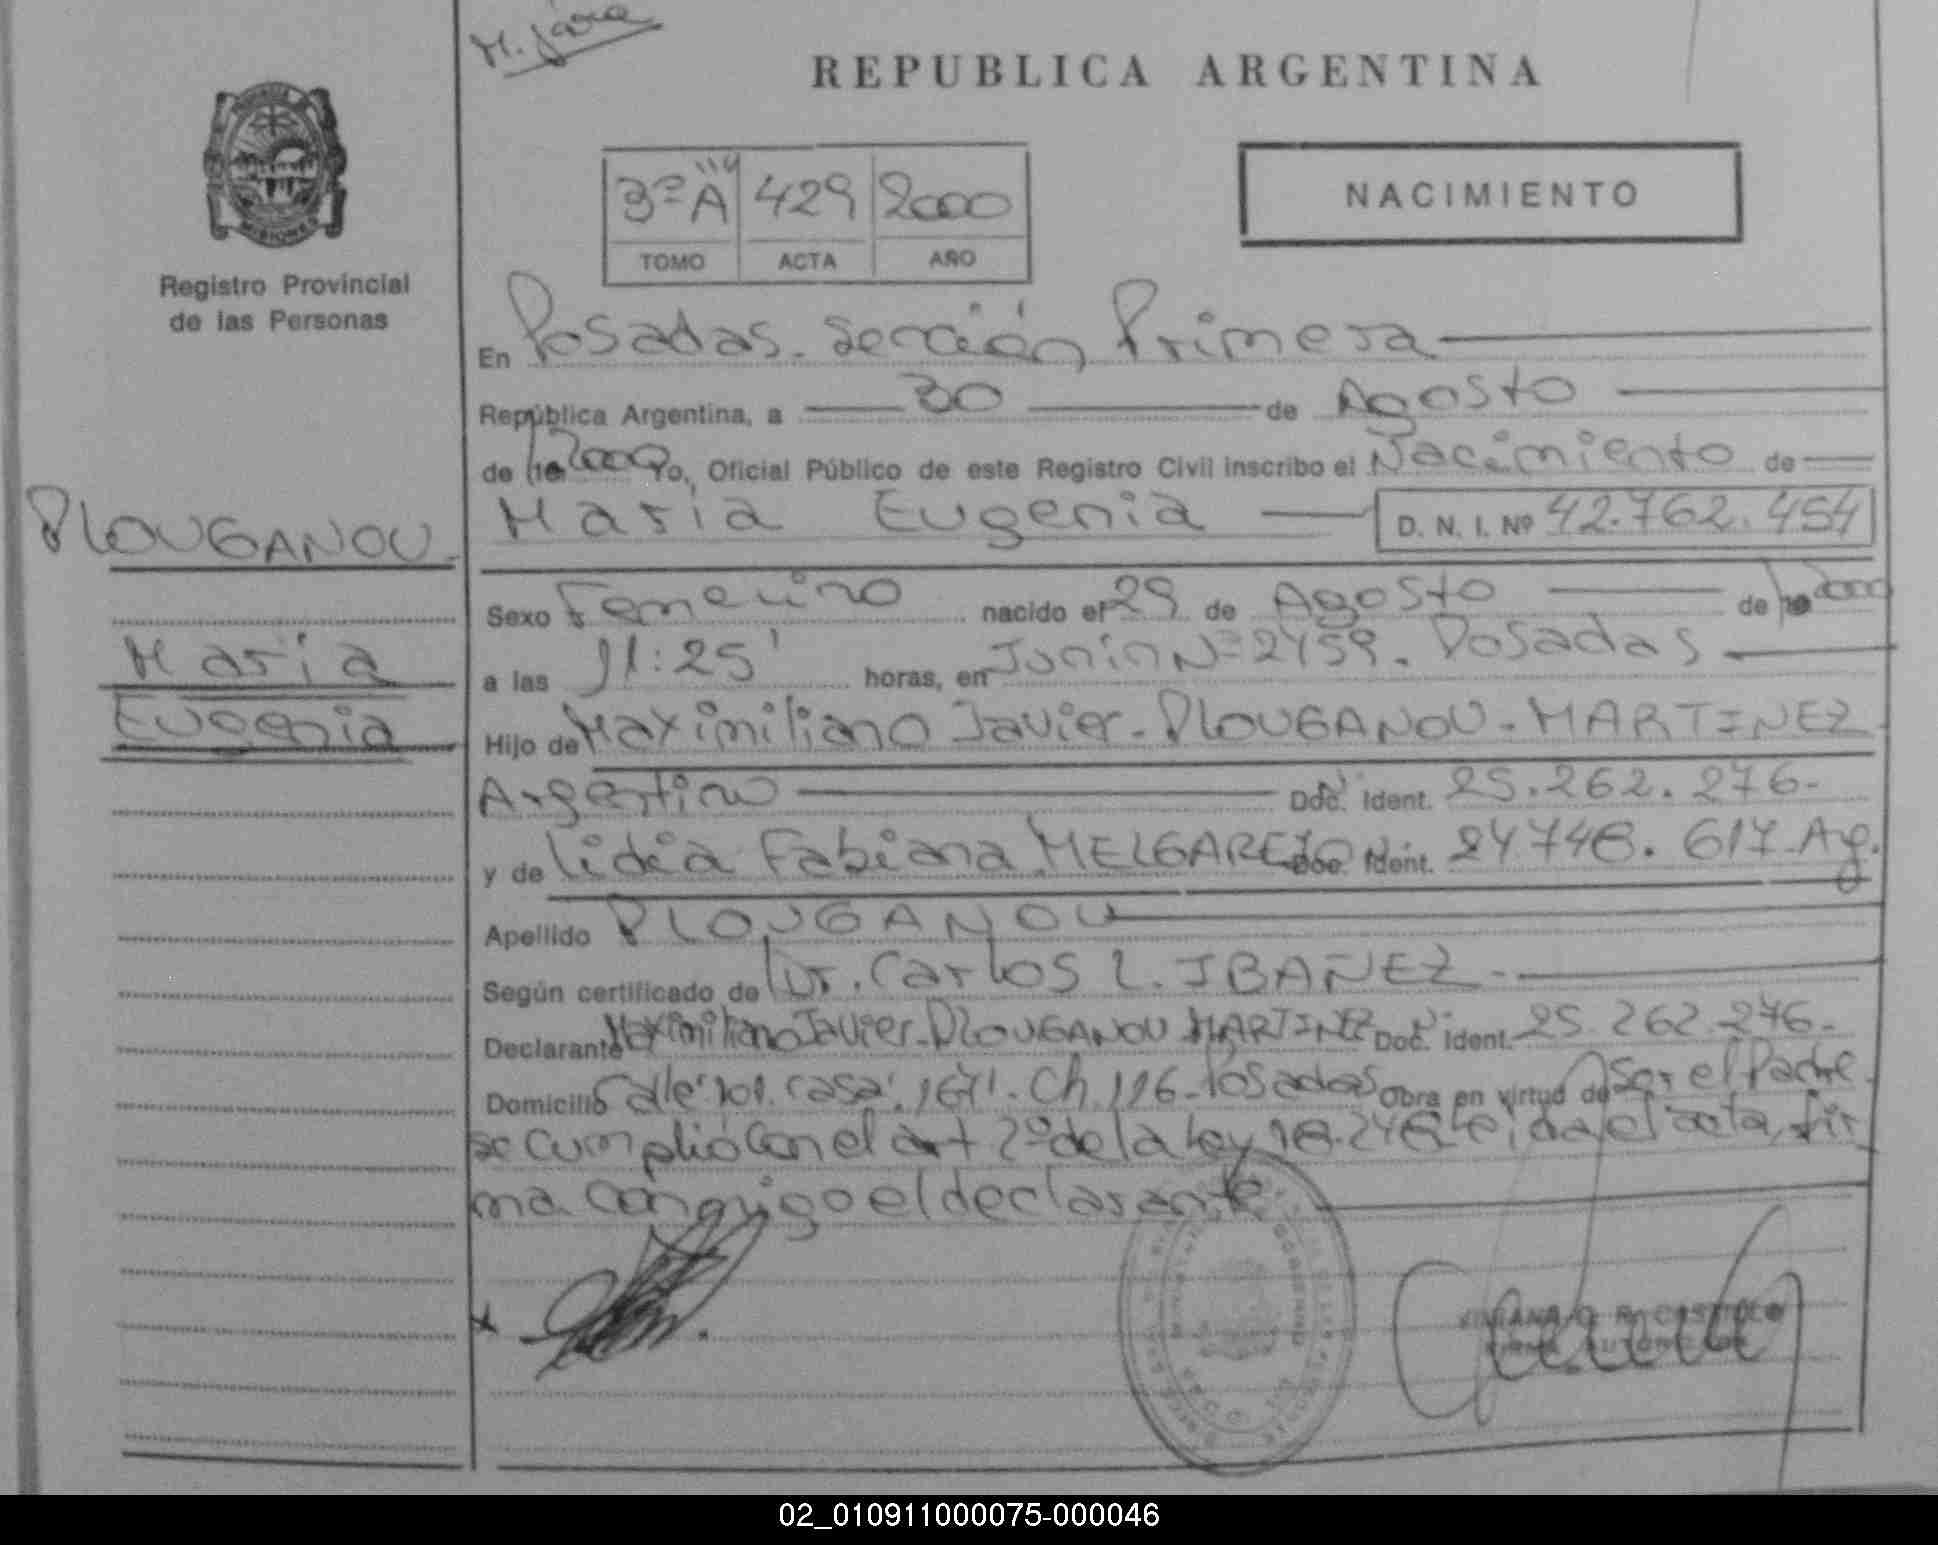 M. Jara
REPUBLICA ARGENTINA
MISIONES
Registro Provincial
de las Personas
3º "A" 429 2000
TOMO ACTA AÑO
NACIMIENTO
En Posadas. Sección Primera
República Argentina, a 30 de Agosto
de 2000 Yo, Oficial Público de este Registro Civil inscribo el Nacimiento de
María Eugenia D. N. I. Nº 42.762.454
PLOUGANOU
María
Eugenia
Sexo Femenino nacido el 29 de Agosto de 2000
a las 11:25' horas, en Junín Nº 2459. Posadas
Hijo de Maximiliano Javier - PLOUGANOU - MARTINEZ
Argentino Doc. Ident. 25.262.276.-
y de Lidia Fabiana MELGAREJO Doc. Ident. 24748.617 Arg.
Apellido PLOUGANOU
Según certificado de Dr. Carlos L. IBAÑEZ -
Declarante Maximiliano Javier - PLOUGANOU MARTINEZ Doc. Ident. 25.262.276.-
Domicilio Calle 101. casa: Ch. 116 - Posadas Obra en virtud de Ser el Padre.
se cumplió con el art 2º de la Ley 18.248 leída el acta, fir
ma conmigo el declarante
R. CASTILLO
02_010911000075-000046